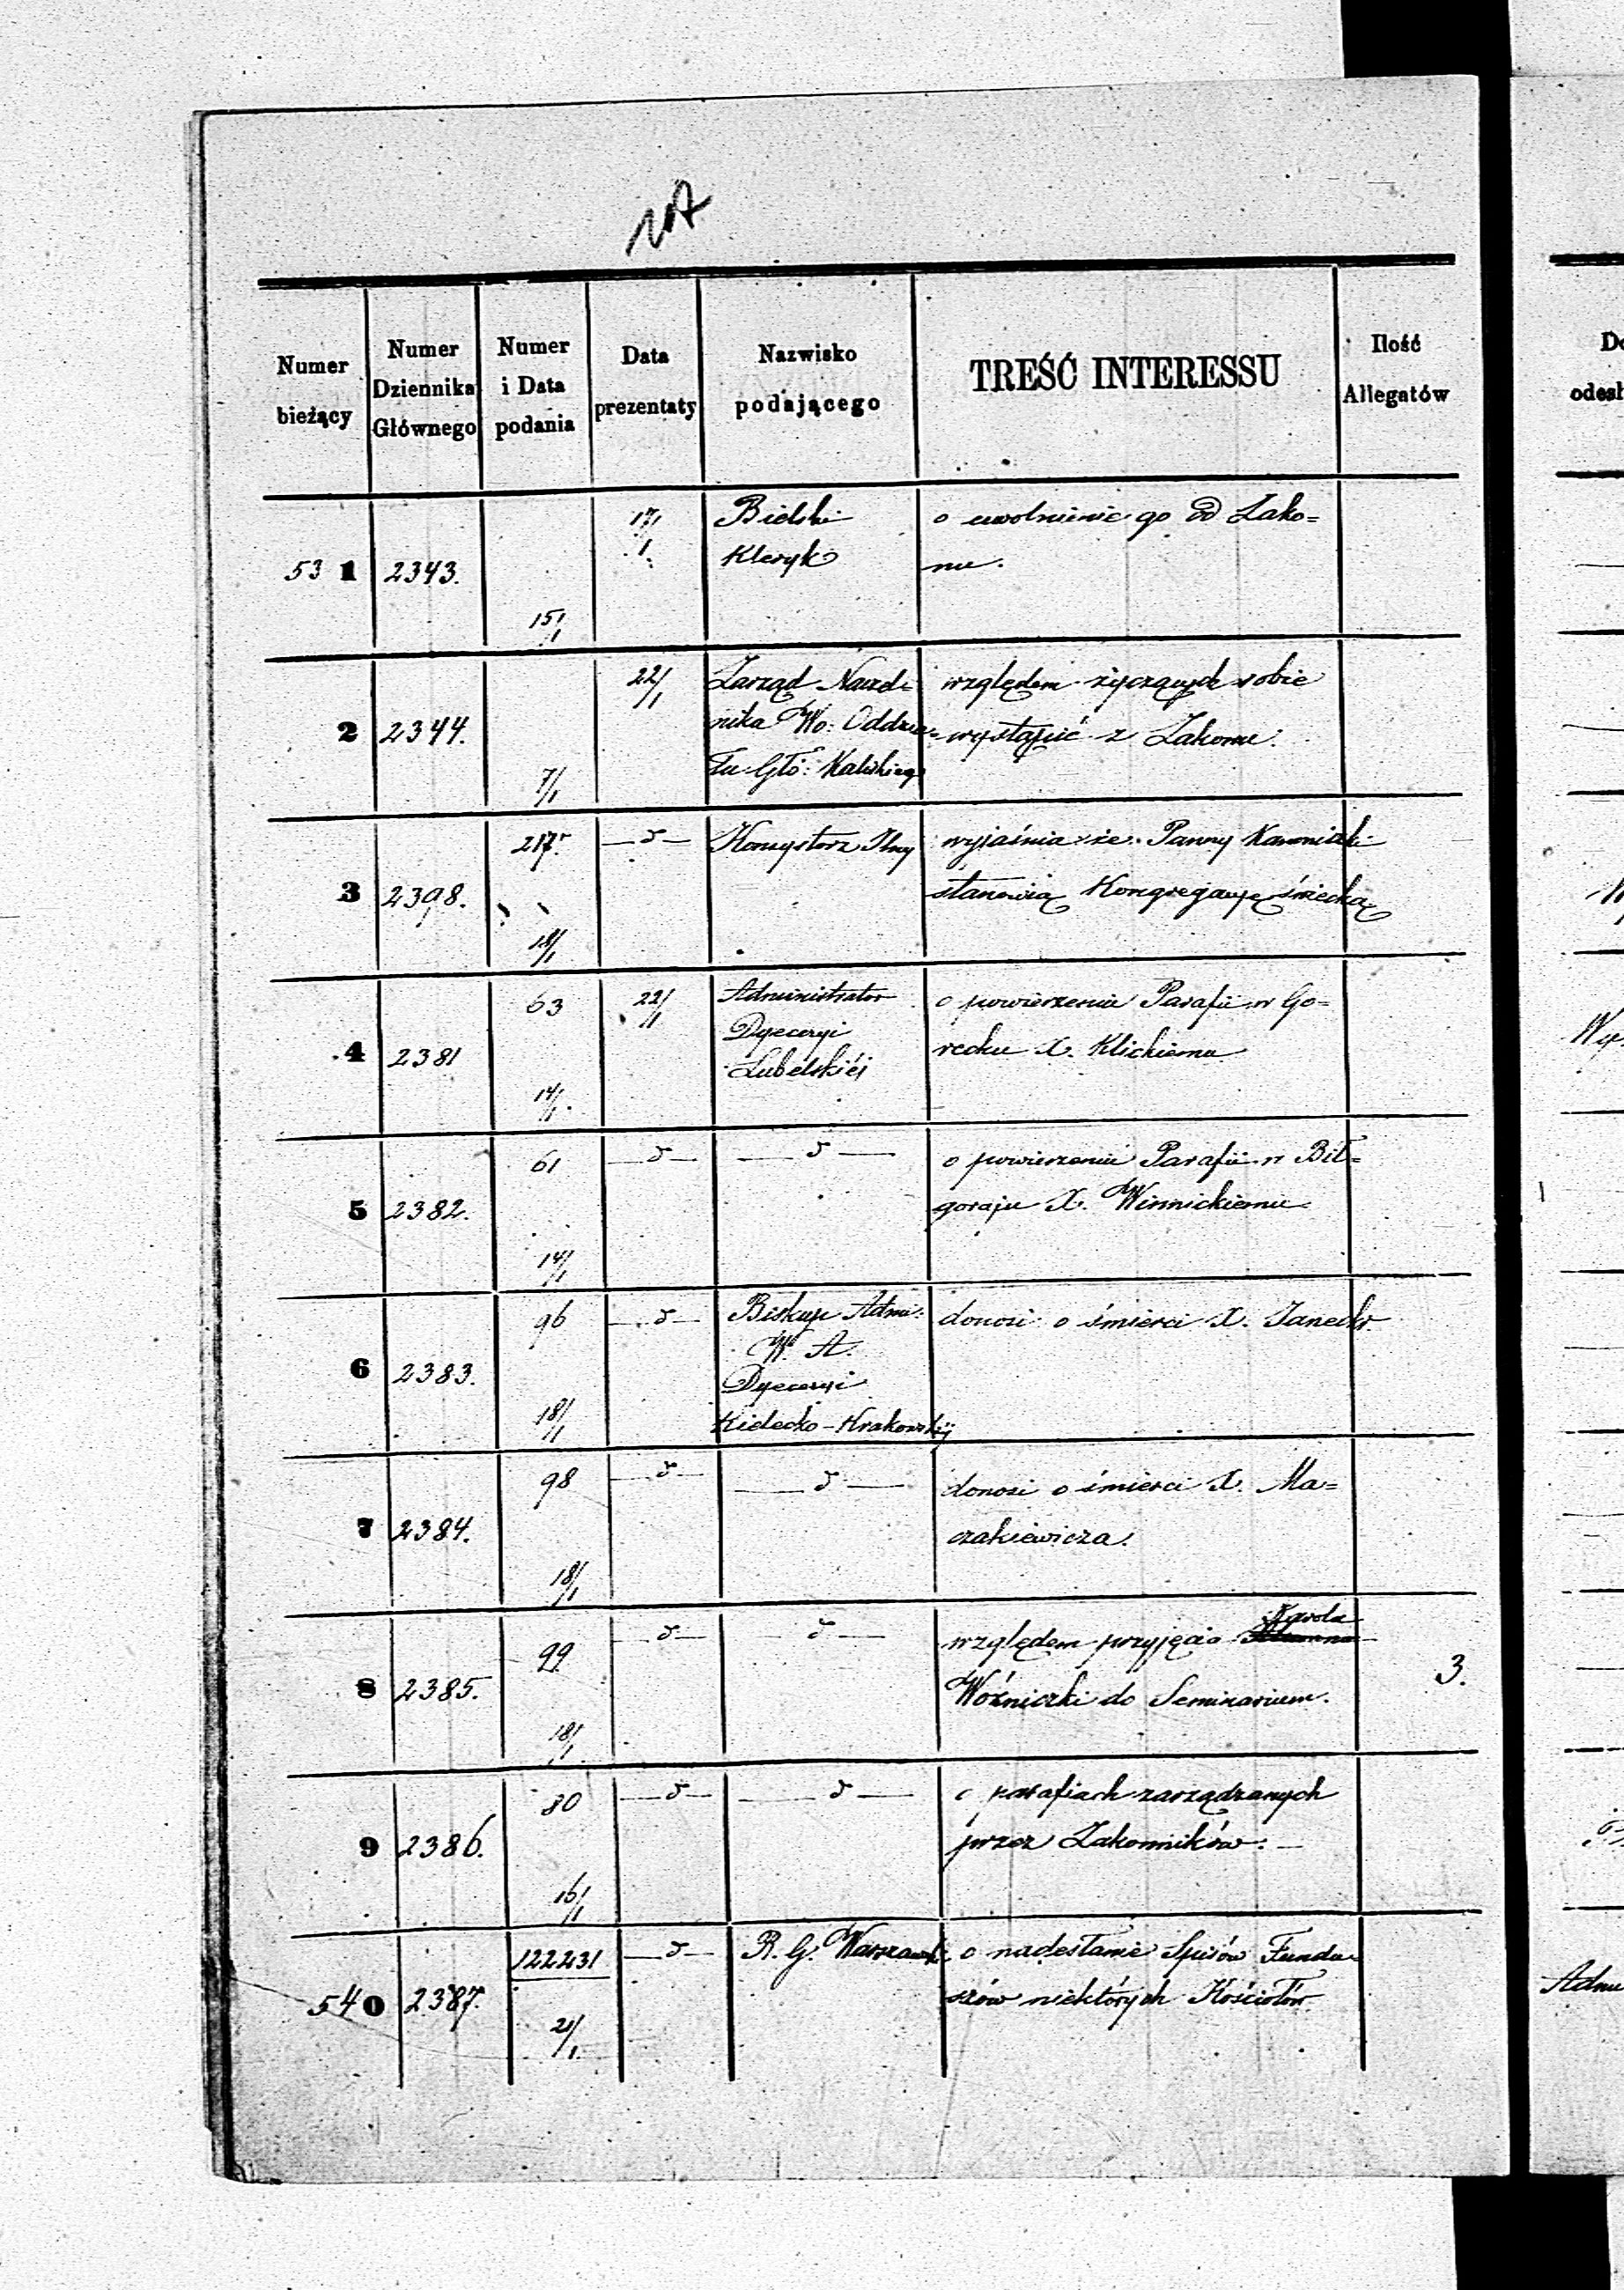 Numer bieżący
Numer Dziennika Głównego
Numer i Data podania
Data prezentaty
Nazwisko podającego
TREŚĆ INTERESSU
Ilość Allegatów
531 2343. 15/1 17/1 Bielski Kleryk
o uwolnienie go od Zako=
nu.
2 2344. 7/1 22/1 Zarząd Naczel=
nika Wo: Oddzia=
łu Głó: Kaliskiego
względem życzących sobie
wystąpić z Zakonu.
3 2398. 217. 18/1 —d—
Konsystorz
wyjaśnia że Panny Kanoniczki
stanowią Kongregacyę świecką
4 2381 63 14/1 22/1
Administrator
Dyecezyi
Lubelskiéj
o powierzenie Parafii w Go=
recku X. Klickiemu
5 2382. 61 14/1 —d— —d—
o powierzenie Parafii w Bił=
goraju X. Winnickiemu
6 2383. 96 18/1 —d—
Biskup Adm:
W. A.
Dyecezyi
Kielecko-Krakowskiéj
donosi o śmierci X. Janecki
7 2384. 98 18/1 —d— —d—
donosi o śmierci X. Ma=
czakiewicza.
8 2385. 99. 18/1 —d— —d—
Karola
względem przyjęcia
Woźniczki do Seminarium. 3.
9 2386. 80 16/1 —d— —d—
o parafiach zarządzanych
przez Zakonników.
540 2387. 122231 21/1 —d— R. G. Warszawski
o nadesłanie Spisów Fundu=
szów niektórych Kościołów